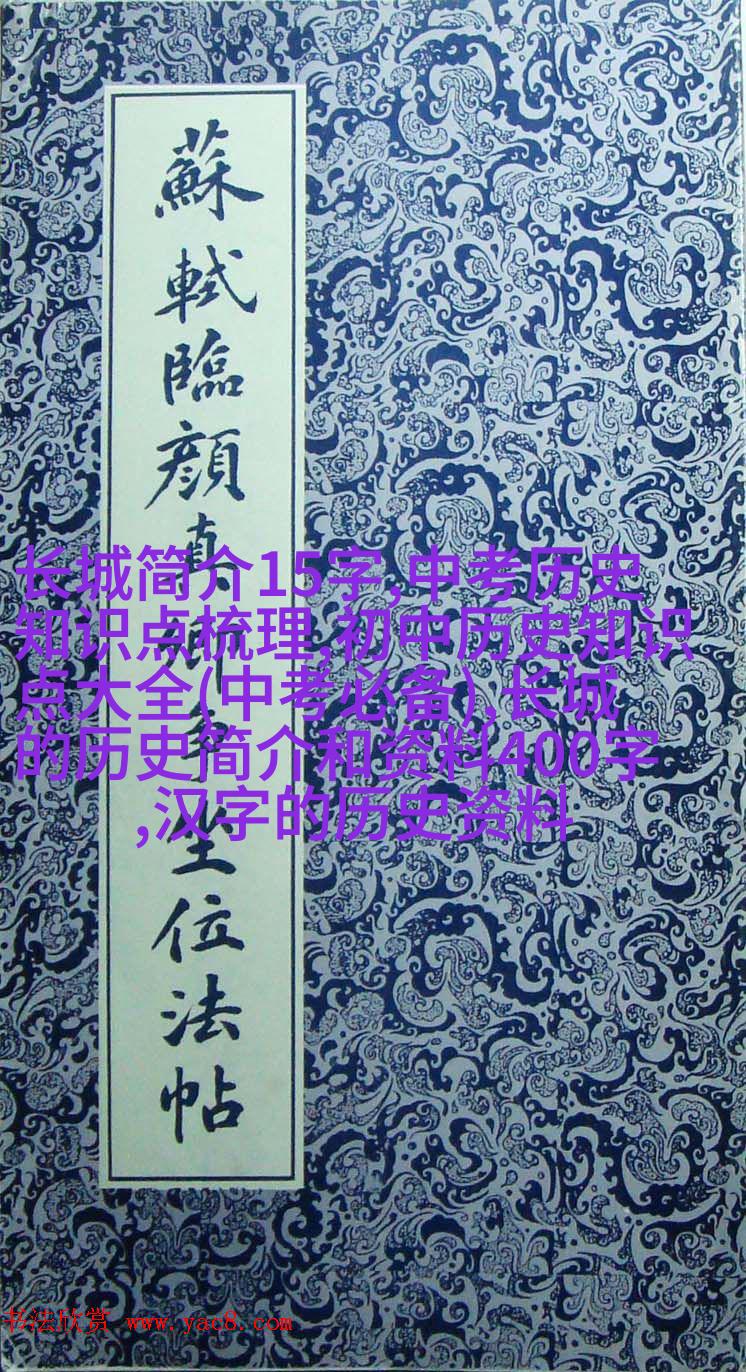 蘇軾臨顔真卿争坐位法帖
长城简介15字,中考历史
知识点梳理,初中历史知识
点大全(中考必备),长城
的历史简介和资料400字
,汉字的历史资料
书法欣赏 www.yac8.com